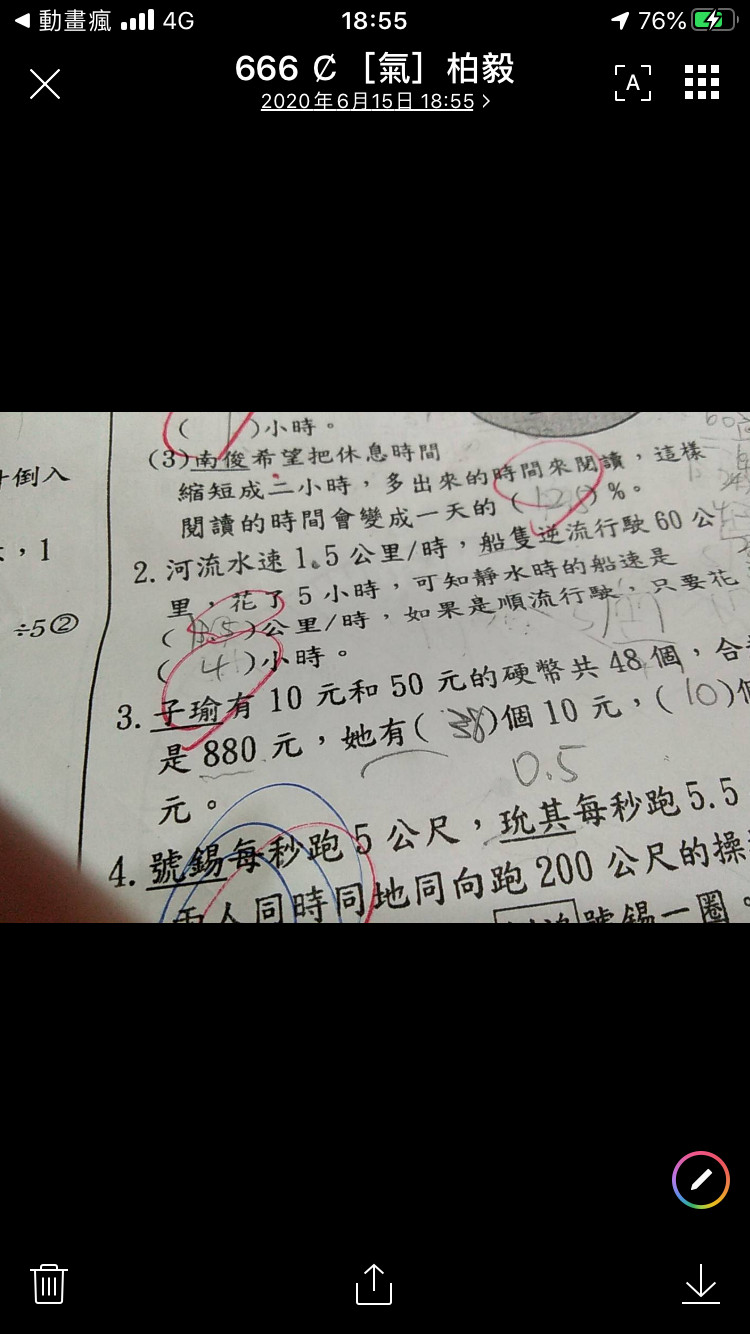 動畫瘋 4G 18:55 76%
666 ₡ ［氣］柏毅
2020年6月15日 18:55
A
( )小時。
(3)南俊希望把休息時間
縮短成二小時，多出來的時間來閱讀，這樣
閱讀的時間會變成一天的( )%。
倒入
，1
÷5②
2. 河流水速1.5公里/時，船隻逆流行駛60公
里，花了5小時，可知靜水時的船速是
( )公里/時，如果是順流行駛，只要花
( 4 )小時。
3. 子瑜有10元和50元的硬幣共48個，合
是880元，她有( 38 )個10元，( 10 )個
元。
0.5
4. 號錫每秒跑5公尺，玧其每秒跑5.5
兩人同時同地同向跑200公尺的操
號錫一圈。